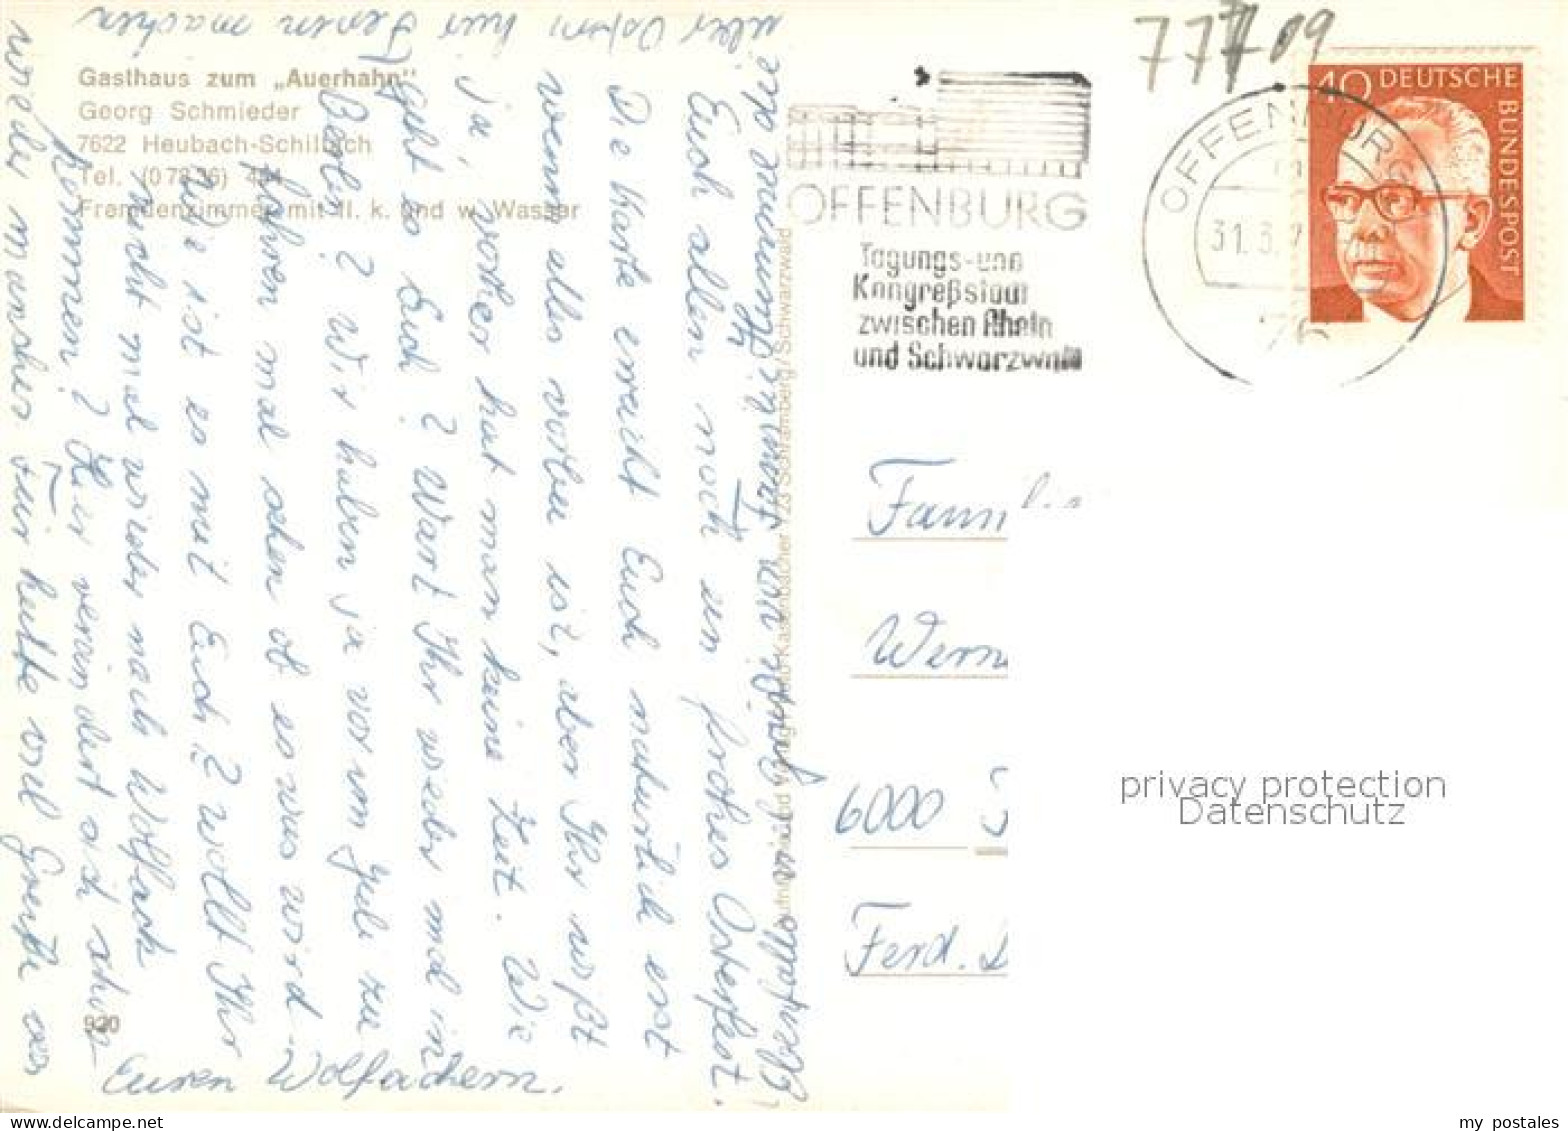 77709
Gasthaus zum „Auerhahn"
Georg Schmieder
7622 Heubach-Schiltach
Tel. (0 78 36)
Fremdenzimmer mit fl. k. und w. Wasser
920
OFFENBURG
Tagungs-und
Kongreßstadt
zwischen Rhein
und Schwarzwald
OFFENBURG
31.3.7
76
40 DEUTSCHE
BUNDESPOST
Euch allen noch ein frohes Osterfest.
Die Karte erreicht Euch natürlich erst
wenn alles vorbei ist, aber Ihr wißt
ja, vorher hat man keine Zeit. Wie
geht es Euch? Wart Ihr wieder mal in
Berlin? Wir haben ja vor im Juli zu
fahren mal sehen ob es was wird
Wie ist es mit Euch? wollt Ihr
nicht mal wieder nach Wolfach
kommen? Hier verändert sich schon
wieder manches Für heute viel Grüße von
Euren Wolfachern.
über Ostern hier Ferien machen
Ebenfalls Grüße von Familie Hummel die
Verlag
Schramberg/Schwarzwald
Familie
Wern
6000
Ferd.
privacy protection
Datenschutz
my postales